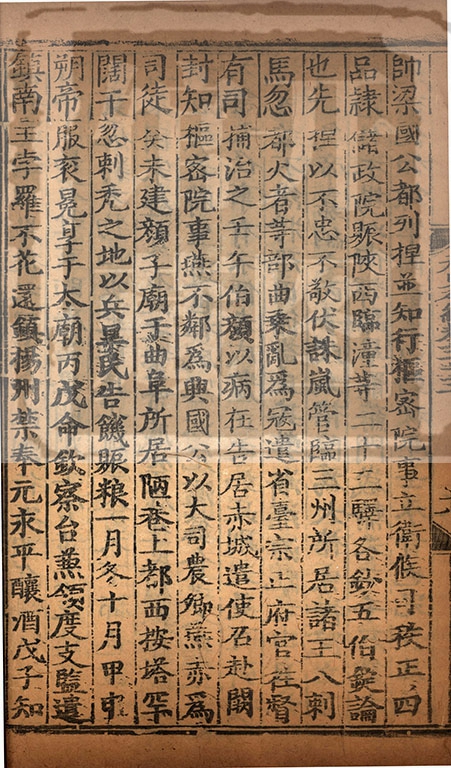 帥梁國公都列捏並知行樞密院事立衛候司秩正四
品隸儲政院賑陝西臨潼等二十二驛各鈔五伯錠論
也先捏以不忠不敬伏誅嵐管臨三州所居諸王八剌
馬忽都火者等部曲乘亂爲寇遣省臺宗正府官往督
有司捕治之壬午伯顏以病在告居赤城遣使召赴闕
封知樞密院事燕不鄰爲興國公以大司農卿燕赤爲
司徒癸未建顏子廟于曲阜所居陋巷上都西按塔罕
闊干忽剌禿之地以兵旱民告饑賑粮一月冬十月甲申
朔帝服袞冕享于太廟丙戌命欽察台兼領度支監遣
鎮南王孛羅不花還鎮揚州禁奉元永平釀酒戊子知